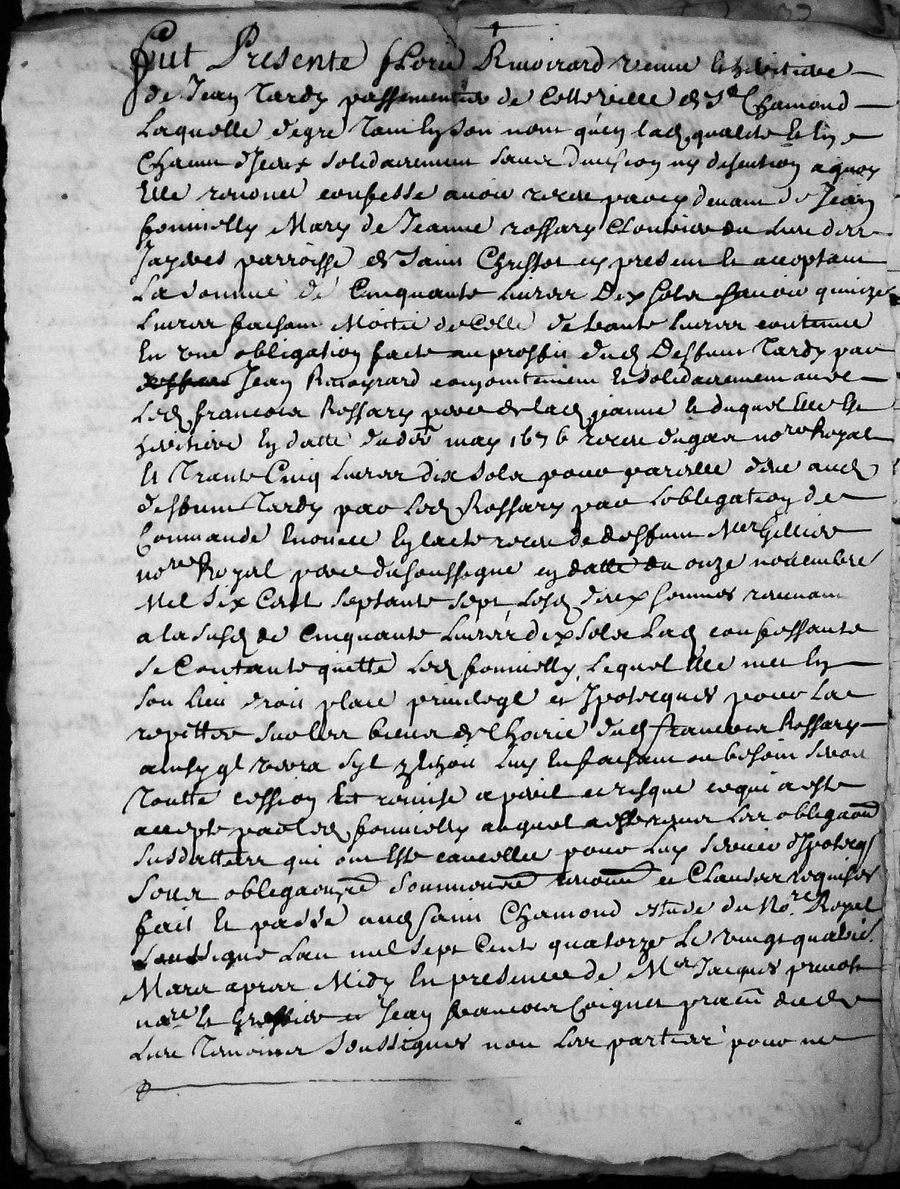 Fut Presente fLorie Rivoirard veuve et heritiere
de Jean Tardy passementier de Cette ville de St Chamond
Laquelle de gre Tant En Son nom qu'en lad qualité et L'un
Chacun d'Jceux Solidairement Sans division ny discution a quoy
Elle renonce confesse avoir receu par cy devant de Jean
fonnielly Mary de Jeanne rossary Cloutier du Lieu de
parroisse de Saint Christot cy present et acceptant
La Somme de Cinquante Livres Dix Sols Savoir quinze
Livres faisant Moitie de Celle de trante Livres contenue
En une obligation faite au proffit dud Deffunt Tardy par
Jean Rivoyrard conjointement et Solidairement avec
Led francois Rossary pere de lad janne et duquel Elle Est
heritiere En datte du may 1676 receue nore Royal
Et Trante Cinq Livres dix Sols pour pareille due aud
deffunt Tardy par Led Rossary par L'obligation de
Commande Enoncee En lacte receu de deffunt Mer Gillier
nore Royal pere du Soussigne en datte du onze novembre
Mil Six Cent Septante Sept Lesd deux Sommes revenant
a la Susd de Cinquante Livres dix Sols Lad confessante
Se Contante quitte Led fonnielly, Lequel Elle met En
Son Lieu droit place privilege et Ypotecques pour Le
repetter Sur Les biens de L'hoirie dud francois Rossary
ainsy ql verra Luy En faisant au besoin Servir
Toutte cession Et remise a peril et risque ce qui a este
accepte par Led fonnielly auquel a este remis Les obligaons
Susdattees qui ont Este cancellees pour Luy Servir d'Ypotecqs
Sous obligaons Soumions renons et Clauses requises
fait et passé aud Saint Chamond estude du Nore Royal
Soussigne Lan mil Sept Cent quatorze Le vingt quatrie
Mars apres Midy En presence de Mer Jacques prevost
nore et Greffier et Jean francois Coignet pratn dud
Lieu Temoins Soussignes non Les parties pour ne